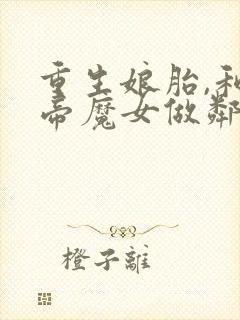 重生娘胎,和
帝魔女做鄰
橙子離